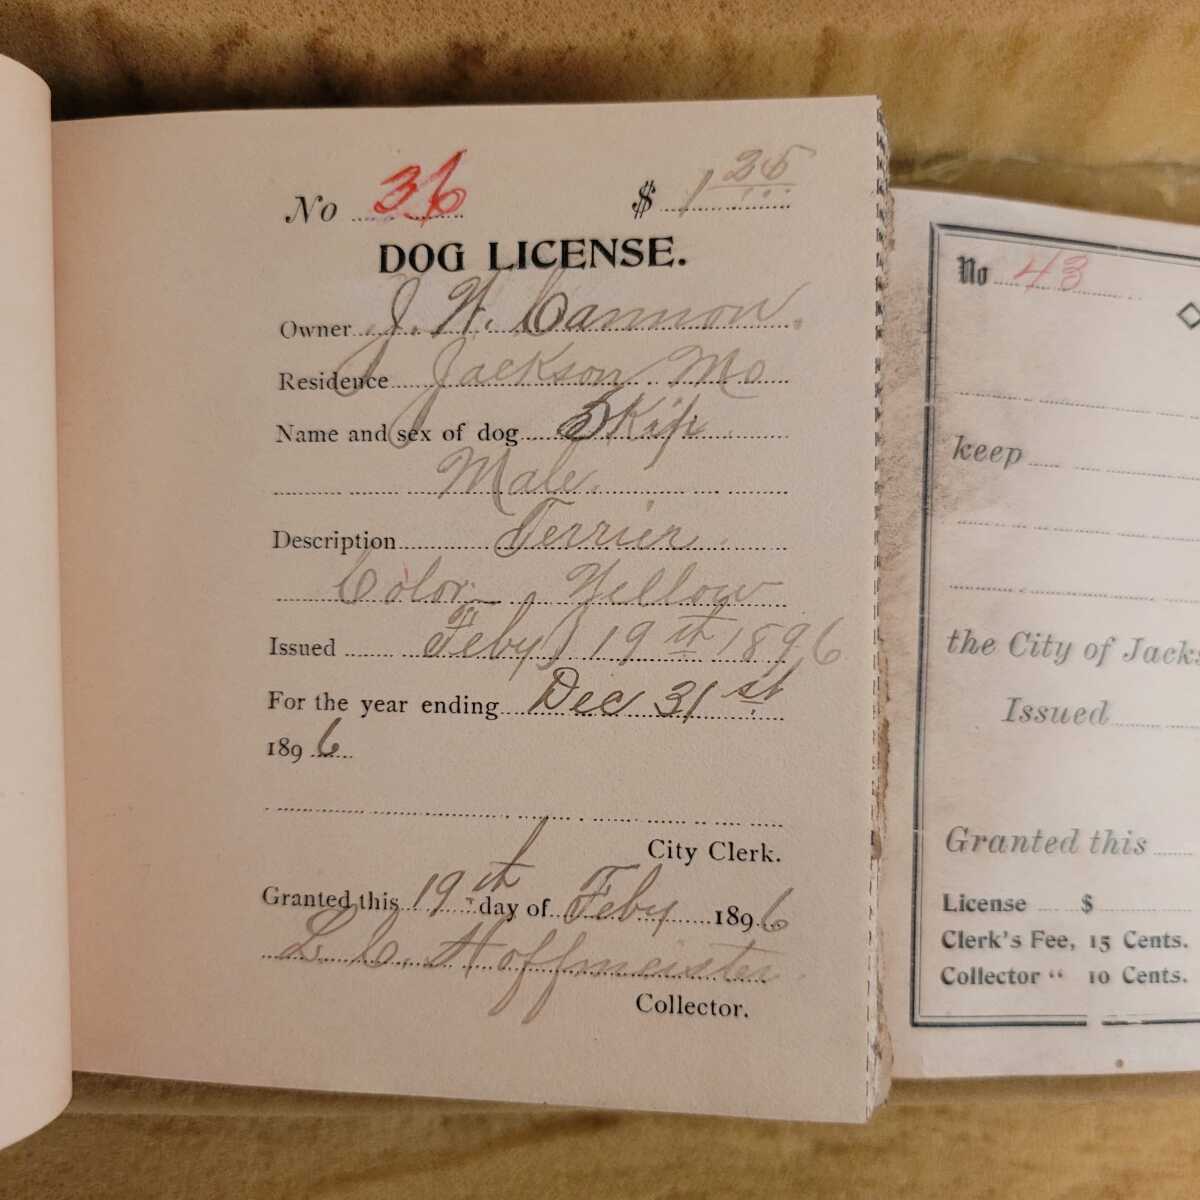 No 36 $ 1 25
DOG LICENSE.
Owner J. W. Cannon.
Residence Jackson Mo
Name and sex of dog Skip
Male.
Description Terrier
Color Yellow
Issued Feby 19th 1896
For the year ending Dec 31st
1896
City Clerk.
Granted this 19th day of Feby 1896
L. C. Hoffmeister.
Collector.
No 43
keep
the City of Jacks
Issued
Granted this
License $
Clerk's Fee, 15 Cents.
Collector “ 10 Cents.